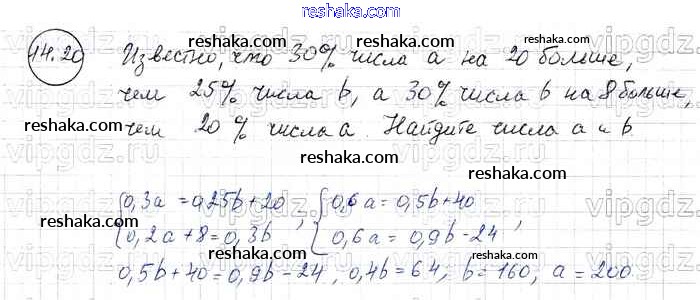 reshaka.com
14.20 Известно, что 30% числа a на 20 больше,
чем 25% числа b, а 30% числа b на 8 больше,
чем 20% числа a. Найдите числа a и b.
reshaka.com reshaka.com reshaka.com
reshaka.com reshaka.com reshaka.com
reshaka.com reshaka.com
{0,3a = 0,25b + 20 , {0,6a = 0,5b + 40 ,
reshaka.com reshaka.com
{0,2a + 8 = 0,3b {0,6a = 0,9b - 24
0,5b + 40 = 0,9b - 24, 0,4b = 64, b = 160, a = 200.
reshaka.com reshaka.com reshaka.com
vipgdz.ru